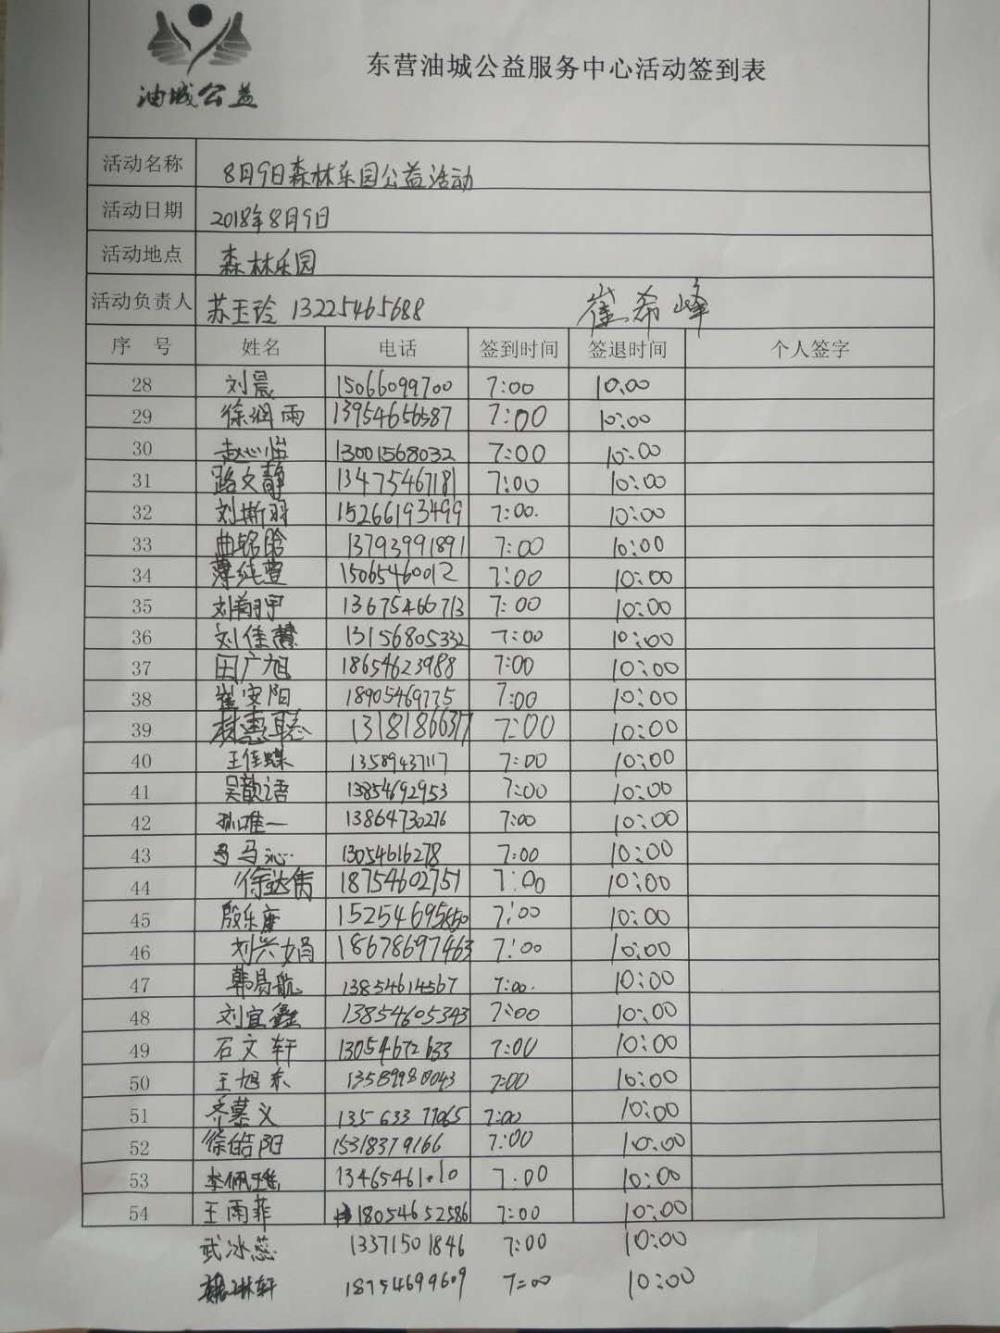 油城公益
东营油城公益服务中心活动签到表
活动名称 8月9日森林乐园公益活动
活动日期 2018年8月9日
活动地点 森林乐园
活动负责人 苏玉玲 13225465688 崔希峰
序 号 姓名 电话 签到时间 签退时间 个人签字
28 刘晨 15066099700 7:00 10:00
29 徐润雨 13954656587 7:00 10:00
30 赵心怡 13001568032 7:00 10:00
31 路文静 13475467181 7:00 10:00
32 刘斯羽 15266193499 7:00. 10:00
33 曲铭晗 13793991891 7:00 10:00
34 薄纯萱 15065460012 7:00 10:00
35 刘翔宇 13675466713 7:00 10:00
36 刘佳慧 13156805332 7:00 10:00
37 田广旭 18654623988 7:00 10:00
38 崔安阳 18905469775 7:00 10:00
39 林惠聪 13181866317 7:00 10:00
40 王佳蝶 13589437117 7:00 10:00
41 吴歆语 13854692953 7:00 10:00
42 孙唯一 13864730276 7:00 10:00
43 马沁 13054616278 7:00 10:00
44 徐达隽 18754602751 7:00 10:00
45 殷乐童 7:00 10:00
46 刘兴娟 18678697463 7:00 10:00
47 韩易航 13854614567 7:00. 10:00
48 刘宜鑫 13854605343 7:00 10:00
49 石文轩 13054672633 7:00 10:00
50 王旭东 13589980043 7:00 10:00
51 齐慕义 13563377065 7:00 10:00
52 徐皓阳 15318379166 7:00 10:00
53 李佩瑶 7:00 10:00
54 王雨菲 18054652586 7:00 10:00
武冰蕊 13371501846 7:00 10:00
轩 18754699609 7:00 10:00